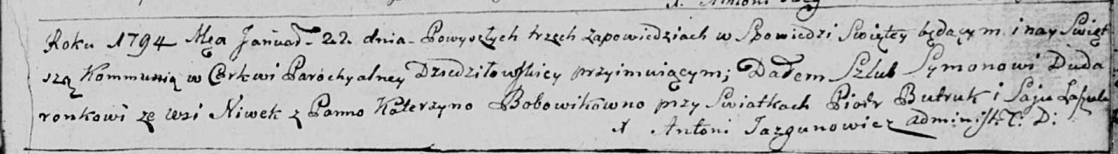 Roku 1794 Mca Januar. 22. dnia. Po wyszłych trzech zapowiedziach w Spowiedzi Swiętey będącym i nay Swięt
szą Kommunią w Cerkwi Parochyalney Dziedziłowskiey przyimuiącym; Dałem Szlub Symonowi Duda
ronkowi ze wsi Niwek z Panno Katerzyno Bobowikawno przy Swiatkach Piotr Butruk i
X Antoni Jazgunowicz administ. C. D: